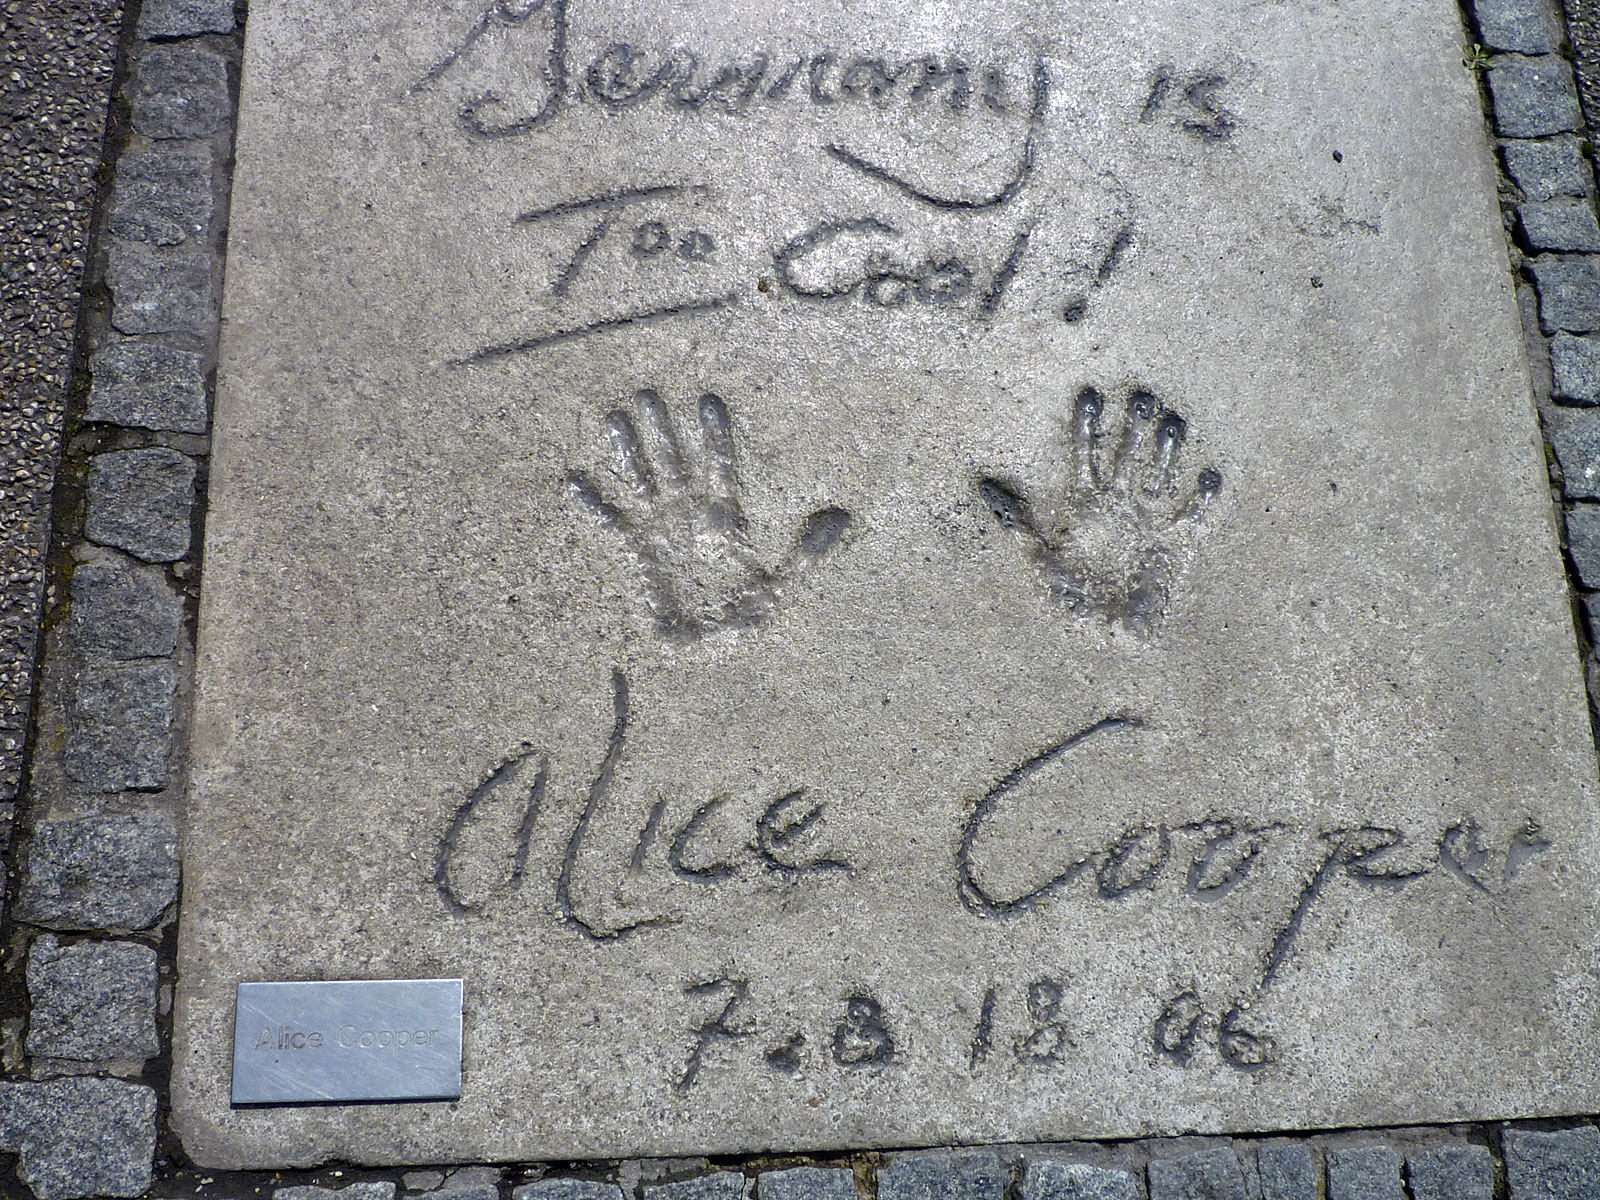 Germany is
Too Cool!
Alice Cooper
7.8 18 06
Alice Cooper